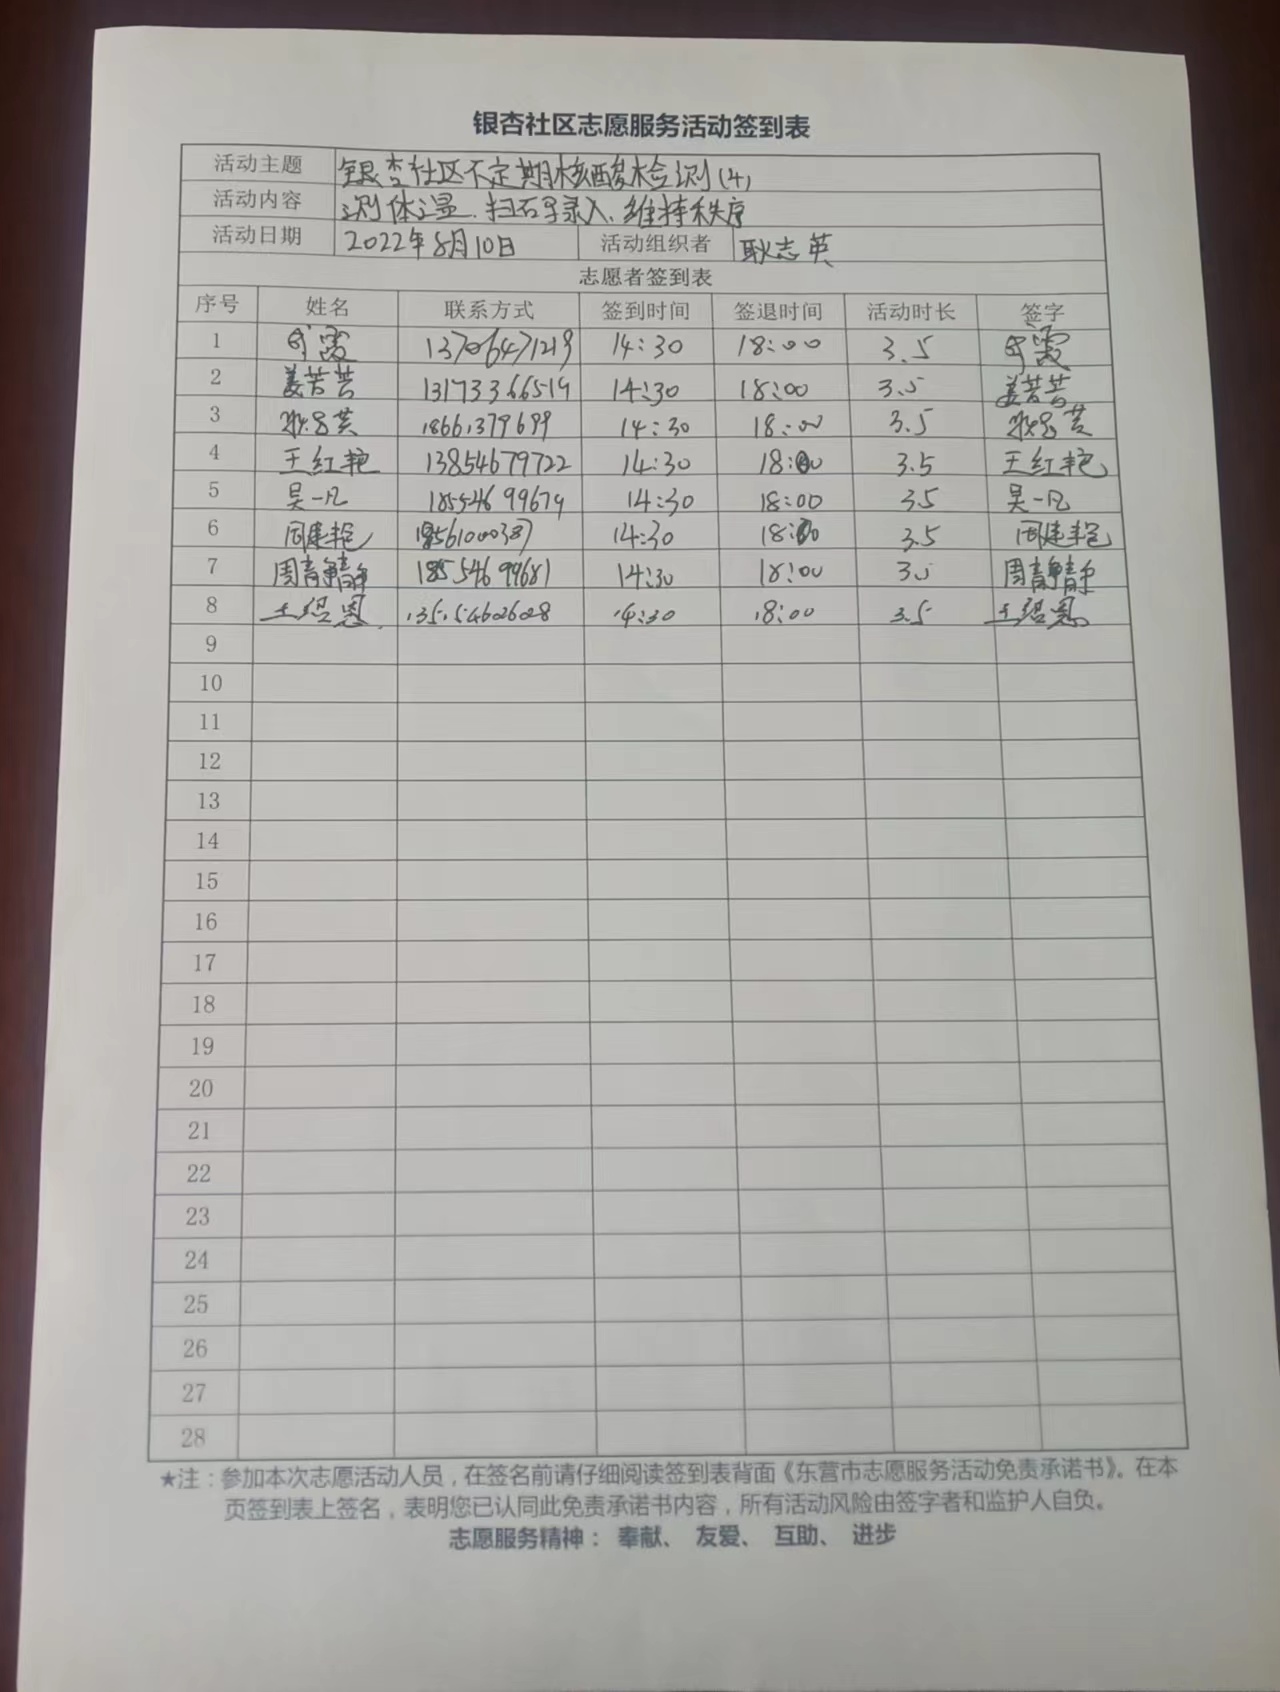 银杏社区志愿服务活动签到表
活动主题 银杏社区不定期核酸检测(4)
活动内容 测体温、扫码录入、维持秩序
活动日期 2022年8月10日 活动组织者 耿志英
志愿者签到表
序号 姓名 联系方式 签到时间 签退时间 活动时长 签字
1 霞 13706471219 14:30 18:00 3.5 霞
2 姜芳芳 13173366519 14:30 18:00 3.5 姜芳芳
3 耿志英 18661379699 14:30 18:00 3.5 耿志英
4 王红艳 13854679722 14:30 18:00 3.5 王红艳
5 吴一凡 18554699679 14:30 18:00 3.5 吴一凡
6 周建艳 18561000387 14:30 18:00 3.5 周建艳
7 周静静 18554699681 14:30 18:00 3.5 周静静
8 王绍恩 13515462628 14:30 18:00 3.5 王绍恩
9
10
11
12
13
14
15
16
17
18
19
20
21
22
23
24
25
26
27
28
★注：参加本次志愿活动人员，在签名前请仔细阅读签到表背面《东营市志愿服务活动免责承诺书》。在本
页签到表上签名，表明您已认同此免责承诺书内容，所有活动风险由签字者和监护人自负。
志愿服务精神： 奉献、 友爱、 互助、 进步